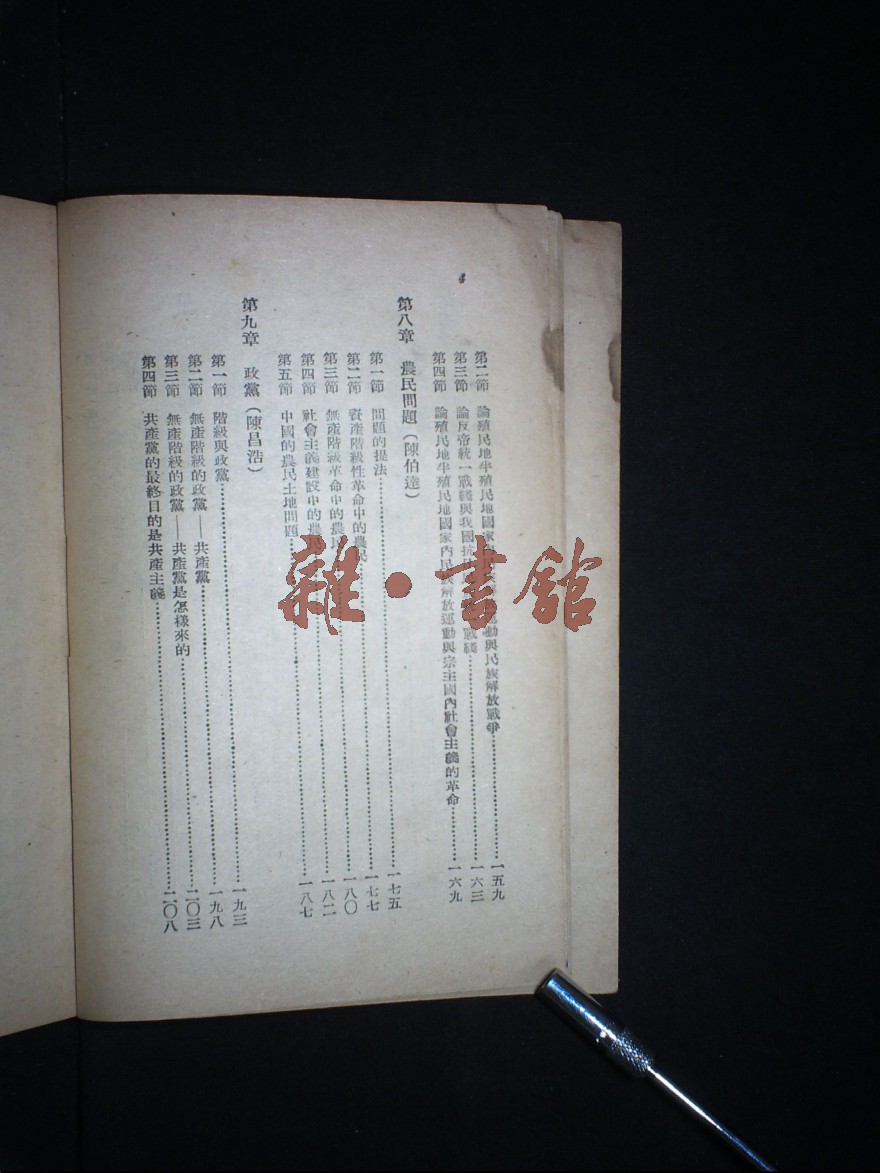 第二節 論殖民地半殖民地國家 民族解放運動與民族解放戰爭 一五九
第三節 論反帝統一戰綫與我國抗 戰綫 一六三
第四節 論殖民地半殖民地國家內民族解放運動與宗主國內社會主義的革命 一六九
第八章 農民問題(陳伯達)
第一節 問題的提法 一七五
第二節 資產階級性革命中的農民 一七七
第三節 無產階級革命中的農民 一八〇
第四節 社會主義建設中的農民 一八二
第五節 中國的農民土地問題 一八七
第九章 政黨(陳昌浩)
第一節 階級與政黨 一九三
第二節 無產階級的政黨——共產黨 一九八
第三節 無產階級的政黨——共產黨是怎樣來的 二〇三
第四節 共產黨的最終目的是共產主義 二〇八
雜·書館